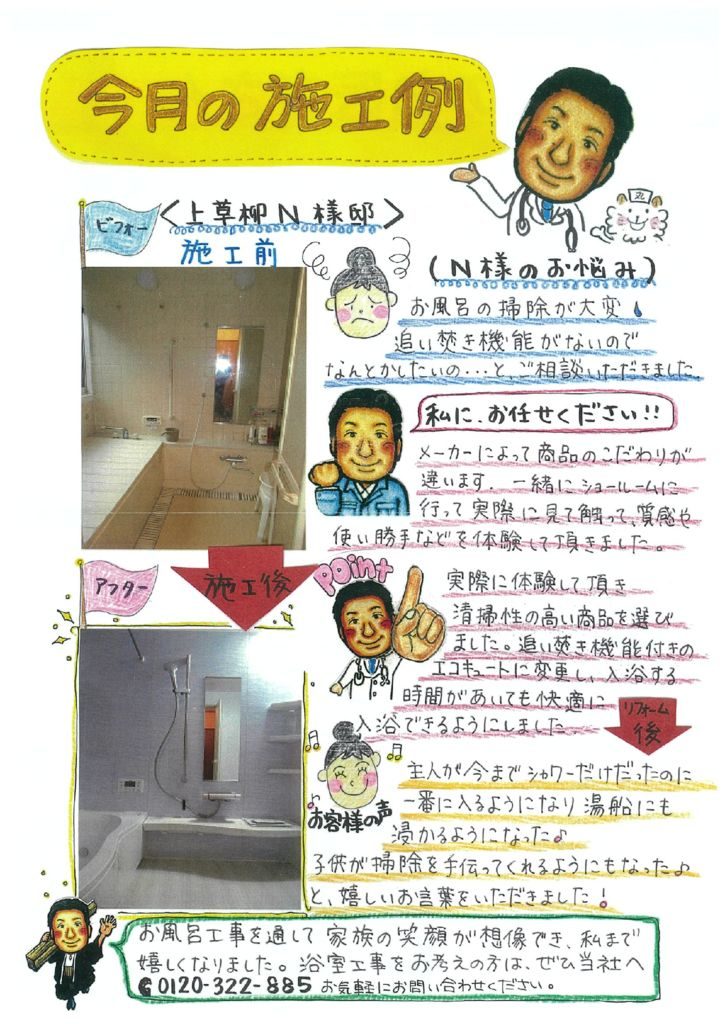 今月の施工例
ビフォー
〈上草柳N様邸〉
施工前
(N様のお悩み)
お風呂の掃除が大変
追い焚き機能がないので
なんとかしたいの・・・と、ご相談いただきました。
私に、お任せください!!
メーカーによって商品のこだわりが
違います。一緒にショールームに
行って実際に見て触って、質感や
使い勝手などを体験して頂きました。
アフター
施工後
Point
実際に体験して頂き
清掃性の高い商品を選び
ました。追い焚き機能付きの
エコキュートに変更し、入浴する
時間があいても快適に
入浴できるようにしました
リフォーム
後
お客様の声
主人が今までシャワーだけだったのに
一番に入るようになり湯船にも
浸かるようになった♪
子供が掃除を手伝ってくれるようにもなった♪
と、嬉しいお言葉をいただきました!
お風呂工事を通して家族の笑顔が想像でき、私まで
嬉しくなりました。浴室工事をお考えの方は、ぜひ当社へ
0120-322-885 お気軽にお問い合わせください。